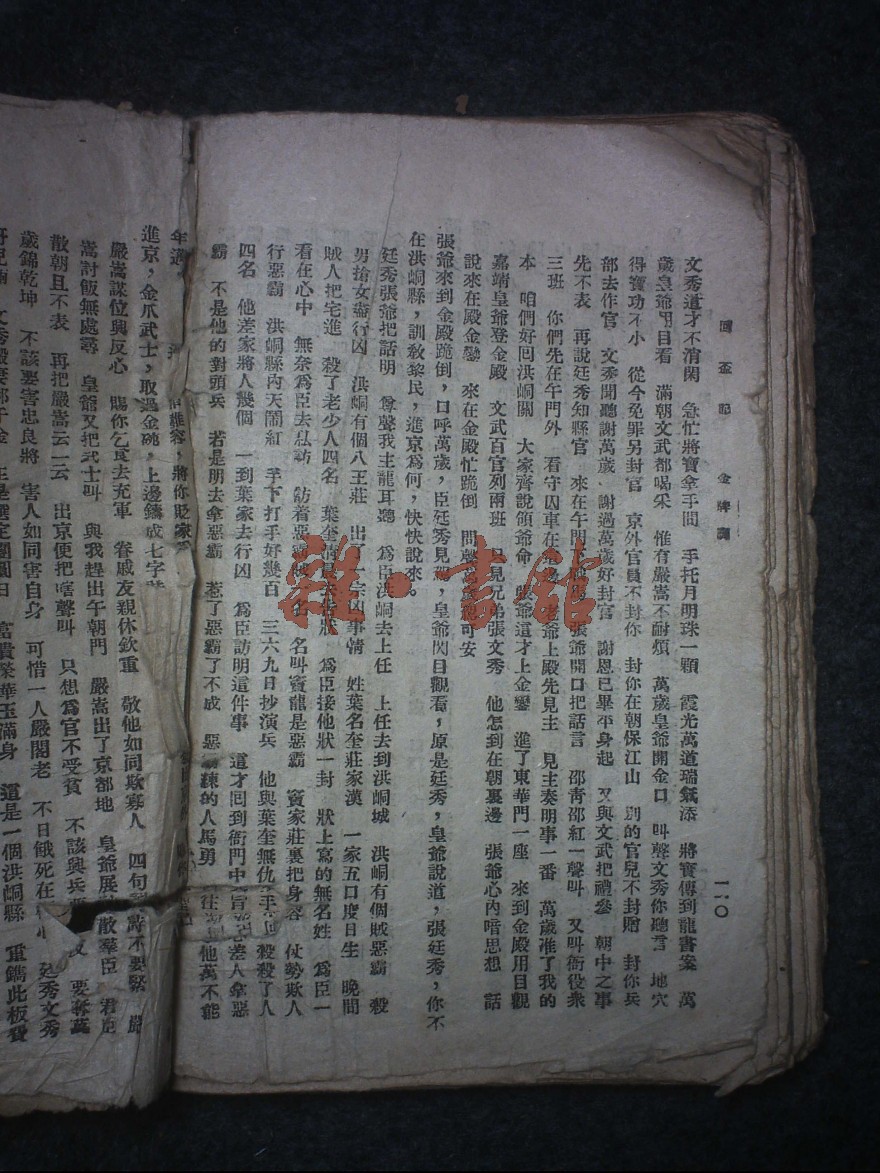 回盃記 金牌調
一一〇
文秀這才不消閑 急忙將寶拿手間 手托月明珠一顆 霞光萬道瑞氣添 將寶傳到龍書案 萬
歲皇爺用目看 滿朝文武都喝采 惟有嚴嵩不耐煩 萬歲皇爺開金口 叫聲文秀你聽言 地穴
得寶功不小 從今免罪另封官 京外官員不封你 封你在朝保江山 別的官兒不封贈 封你兵
部去作官 文秀聞聽謝萬歲 謝過萬歲好封官 謝恩已畢平身起 又與文武把禮參 朝中之事
先不表 再說廷秀知縣官 來在午門 張爺開口把話言 邵青邵紅一聲叫 又叫衙役衆
三班 你們先在午門外 看守囚車在 老爺上殿先見主 見主奏明事一番 萬歲准了我的
本 咱們好回洪峒關 大家齊說領爺命 張爺這才上金鑾 進了東華門一座 來到金殿用目觀
嘉靖皇爺登金殿 文武百官列兩班 只見兄弟張文秀 他怎到在朝裏邊 張爺心內暗思想 話
說來在殿金鑾 來在金殿忙跪倒 問聲萬歲 可安
張爺來到金殿跪倒，口呼萬歲，臣廷秀見駕，皇爺閃目觀看，原是廷秀，皇爺說道，張廷秀，你不
在洪峒縣，訓教黎民，進京爲何，快快說來。
廷秀張爺把話明 尊聲我主龍耳聽 爲臣洪峒去上任 上任去到洪峒城 洪峒有個賊惡霸 殺
男搶女盡行凶 洪峒有個八王莊 出了一宗凶事情 姓葉名奎莊家漢 一家五口度日生 晚間
賊人把宅進 殺了老少人四名 葉奎清晨去告狀 爲臣接他狀一封 狀上寫的無名姓 爲臣一
看在心中 無奈爲臣去私訪 訪着惡霸賊一名 名叫竇龍是惡霸 竇家莊裏把身容 仗勢欺人
行惡霸 洪峒縣內天鬧紅 手下打手好幾百 三六九日抄演兵 他與葉奎無仇 殺殺了人
四名 他差家將人幾個 一到葉家去行凶 爲臣訪明這件事 這才回到衙門中 差人拿惡
霸 不是他的對頭兵 若是明去拿惡霸 惹了惡霸了不成 惡霸練的人馬勇 他萬不能
年過 將你貶家
進京，金爪武士，取過金碗，上邊鑄成七字 敬他如同欺寡人 四句 不要緊 嚴
嚴嵩謀位與反心 賜你乞食去充軍 眷戚友親休欽重
嵩討飯無處尋 皇爺又把武士叫 與我趕出午朝門 嚴嵩出了京都地 皇爺展 散羣臣 君臣
散朝且不表 再把嚴嵩云一云 出京便把啥聲叫 只想爲官不受貧 不該興兵 要奪萬
歲錦乾坤 不該要害忠良將 害人如同害自身 可惜一人嚴閣老 不日餓死在 廷秀文秀
富貴榮華玉滿身 這是一個洪峒縣 重鐫此板
雜·書館